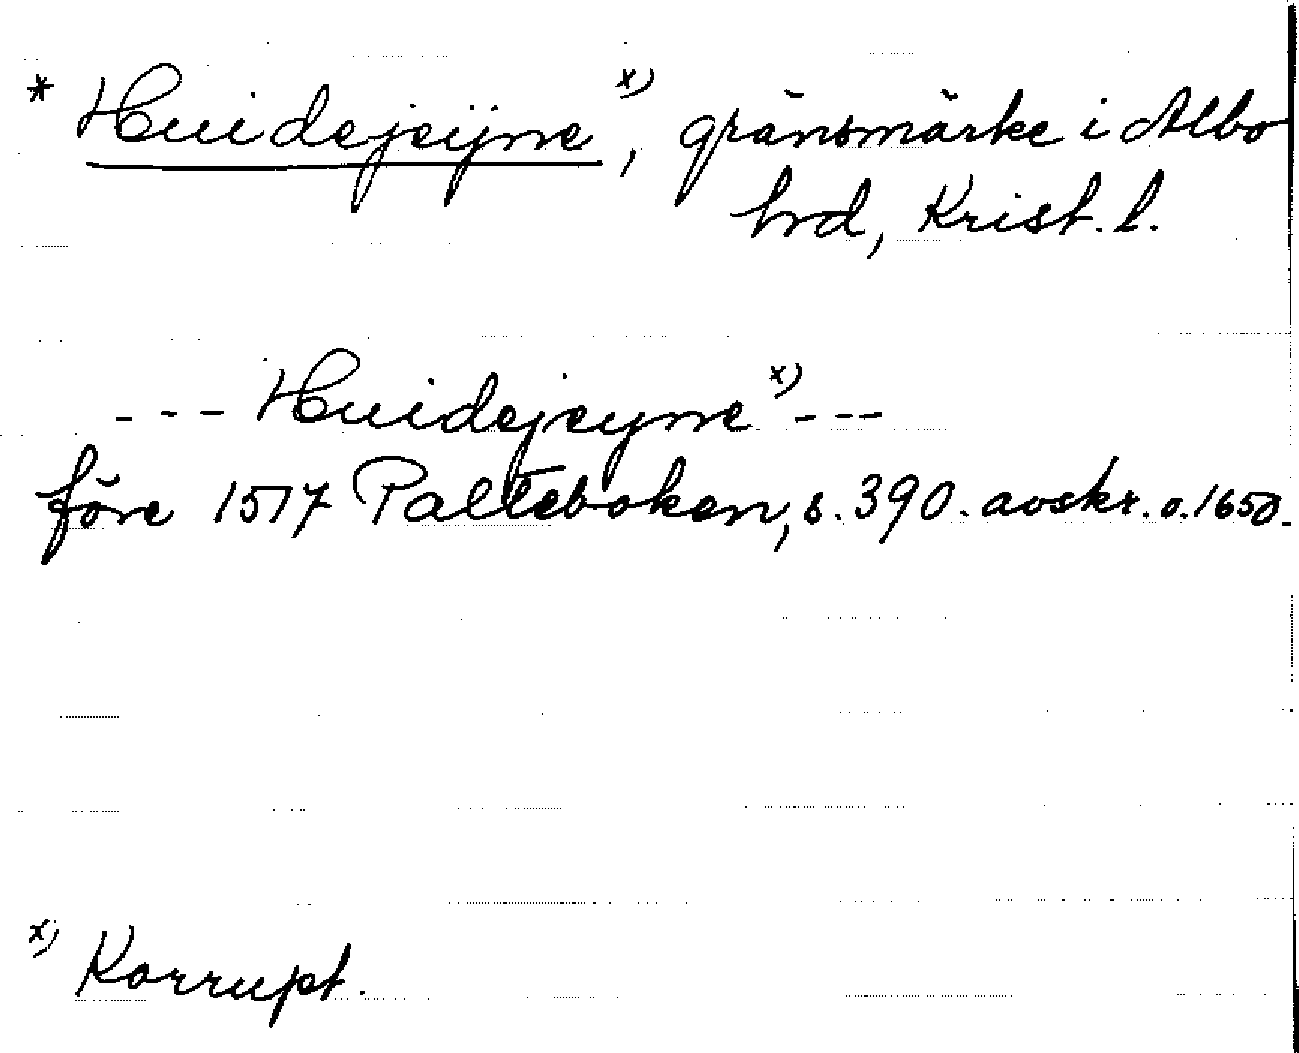 * Huidejeijne x), gränsmärke i Albo
hrd, Krist. l.
--- Huidejeyne x) ---
före 1517 Palteboken, s. 390. avskr. o. 1650.
x) Korrupt.